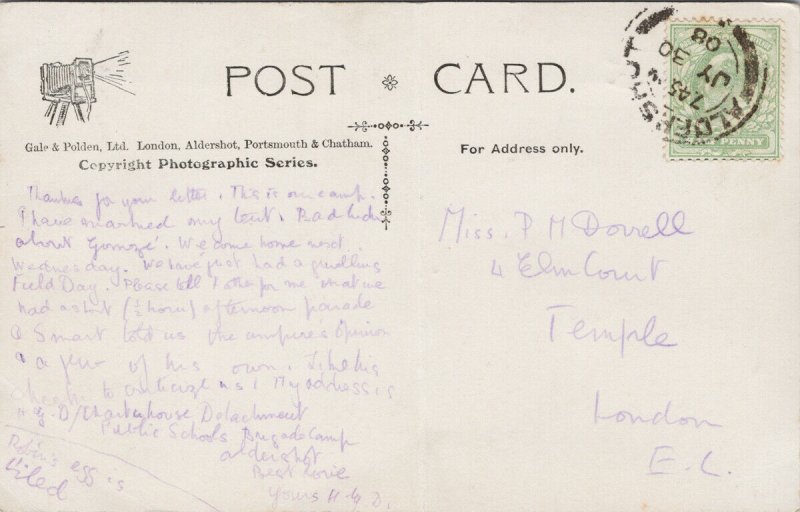 POST CARD.
Gale & Polden, Ltd. London, Aldershot, Portsmouth & Chatham.
Copyright Photographic Series.
For Address only.
ALDERSHOT
7.45
JY 30
08
HALF PENNY
Thanks for your letter. This is our camp.
I have marked my tent. Bad luck
about We come home next
Wednesday. We have just had a gruelling
Field Day. Please tell for me that we
had a short (½ hour) afternoon parade
& Smart told us the umpire's opinion
& a few of his own. I like his
cheek to criticize us! My address is
H.G.D/Charterhouse Detachment
Public Schools Brigade Camp
Aldershot
Best love
Yours H.G.D.
Robin's egg is
Miss. P M Dorrell
4 Elm Court
Temple
London
E.C.